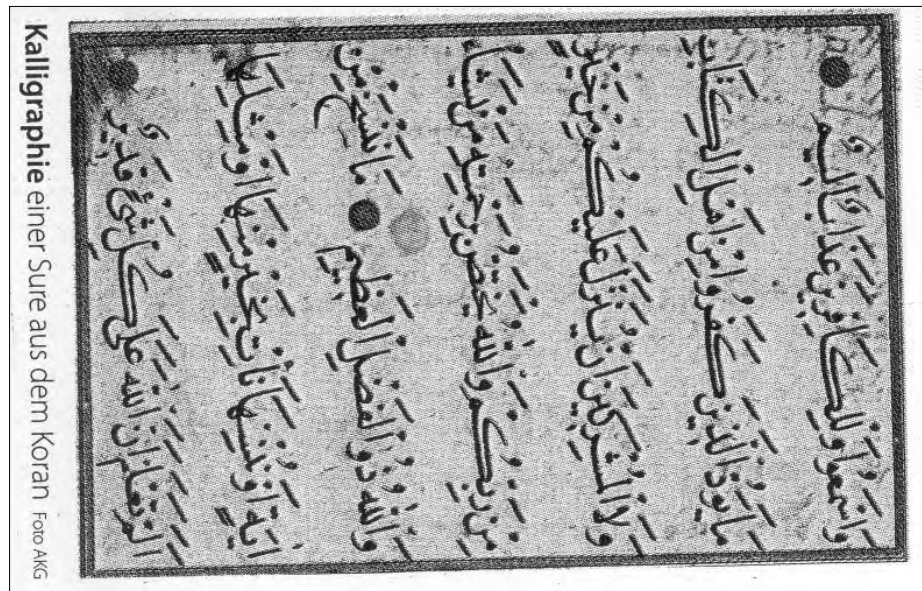 وَاسْمَعُوا وَلِلْكَافِرِينَ عَذَابٌ أَلِيمٌ
مَا يَوَدُّ الَّذِينَ كَفَرُوا مِنْ أَهْلِ الْكِتَابِ
وَلَا الْمُشْرِكِينَ أَنْ يُنَزَّلَ عَلَيْكُمْ مِنْ خَيْرٍ
مِنْ رَبِّكُمْ وَاللَّهُ يَخْتَصُّ بِرَحْمَتِهِ مَنْ يَشَاءُ
وَاللَّهُ ذُو الْفَضْلِ الْعَظِيمِ مَا نَنْسَخْ مِنْ
آيَةٍ أَوْ نُنْسِهَا نَأْتِ بِخَيْرٍ مِنْهَا أَوْ مِثْلِهَا
أَلَمْ تَعْلَمْ أَنَّ اللَّهَ عَلَى كُلِّ شَيْءٍ قَدِيرٌ
Kalligraphie einer Sure aus dem Koran Foto AKG